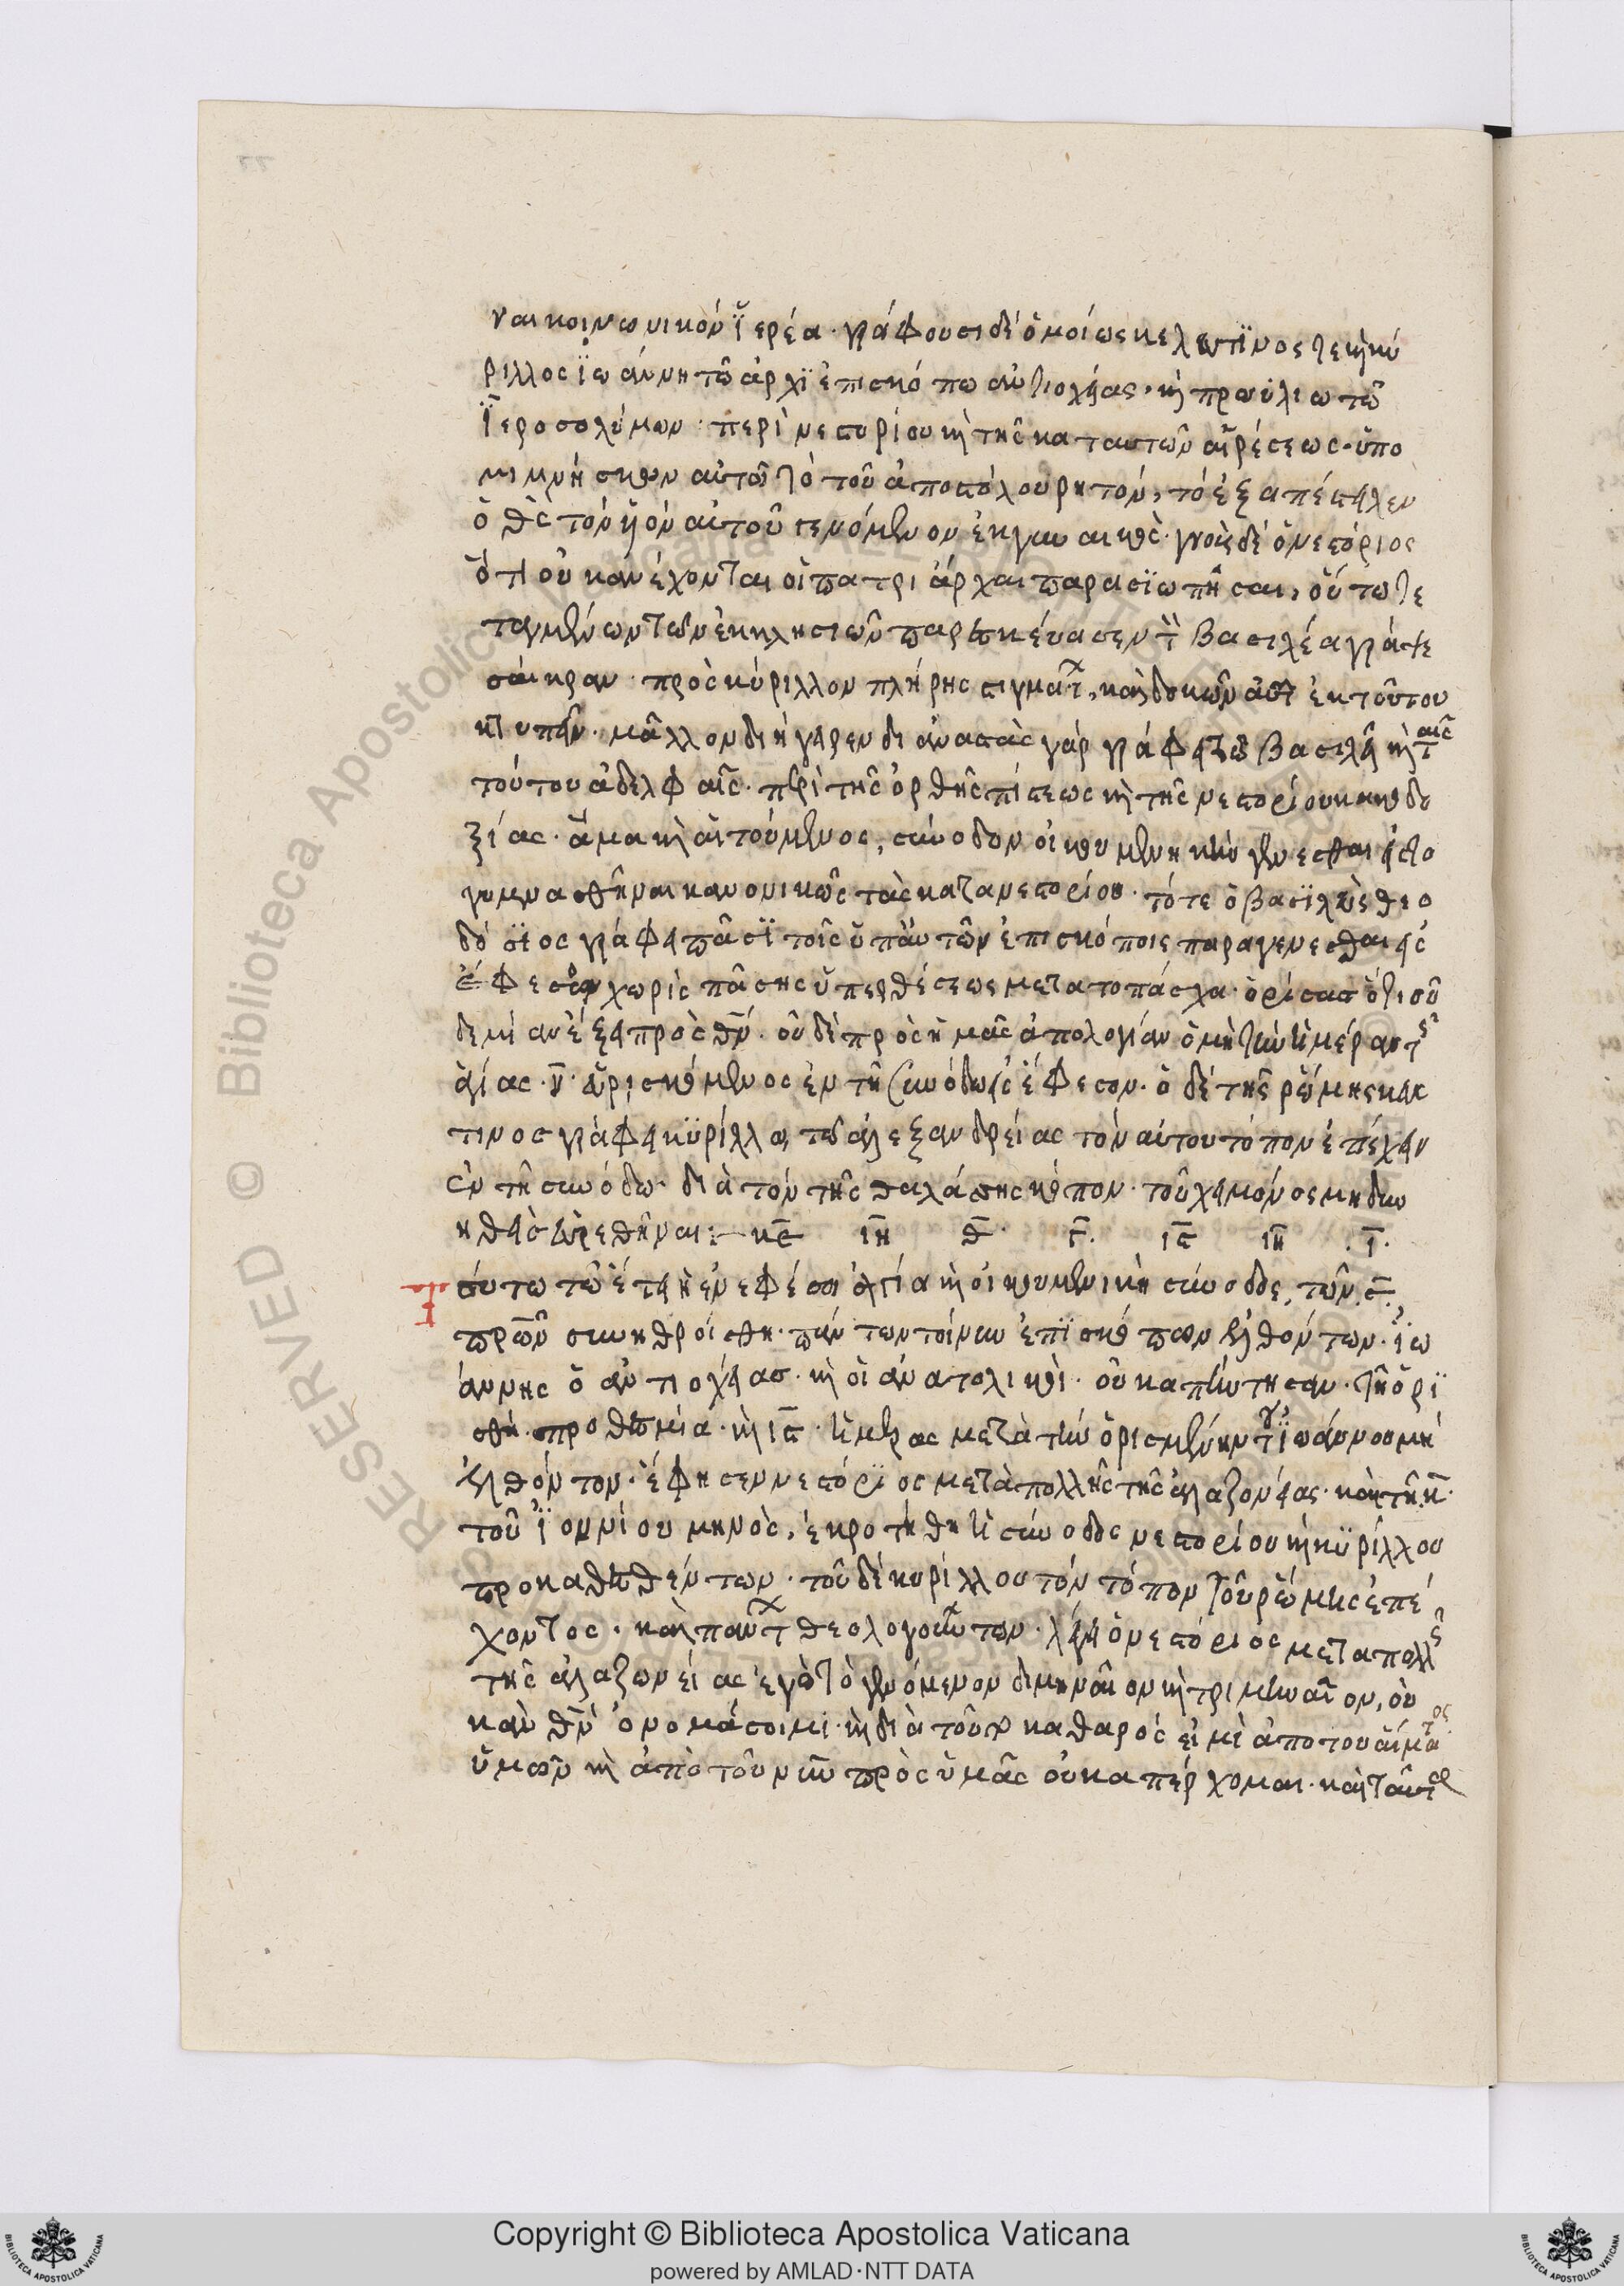 ναι κοινωνικὸν ϊερέα· γράφουσι δὲ ὁμοίως κελεστῖνος τε καὶ κύ
ριλλος ϊωάννη τῶ ἀρχϊεπισκόπω ἀντιοχείας· καὶ πραϋλίω τῶ
ϊεροσολύμων· περὶ νεστορίου καὶ τῆς κατ αυτῶν αἱρέσεως· ὑπο
μιμνήσκων αὐτῶ τὸ τοῦ ἀποστόλου ρητόν, τὸ ἐξαπέστειλεν
ὁ θς τὸν υἱὸν αὐτοῦ γενόμενον ἐκ γυναικὸς· γνοὺς δὲ ὁ νεστόριος
ὅτι οὐκ ἀνέχονται οἱ πατριάρχαι παρασϊωπῆσαι, οὕτω τε
ταγμένων τῶν ἐκκλησιῶν παρεσκεύασεν τὸν βασιλέα γράψε
σάκραν· πρὸς κύριλλον πλήρης στιγμάτων, καὶ δοκῶν αὐτὸν ἐκ τούτου
μᾶλλον διήγειρεν δι ἀναστὰς γὰρ γράφει τῶ βασιλεῖ καὶ ταῖς
τούτου ἀδελφαῖς· περὶ τῆς ὀρθῆς πίστεως καὶ τῆς νεστορίου κακοδο
ξίας· ἅμα καὶ αἰτούμενος, σύνοδον οἰκουμενικὴν γενέσθαι εἰς το
γυμνασθῆναι κανονικῶς τὰς κατὰ νεστορίου· τότε ὁ βασϊλεὺς θεο
δόσϊος γράφει πᾶσϊ τοῖς ὑπ αὐτῶν ἐπισκόποις παραγενέσθαι εἰς
ἔφεσον χωρὶς πάσης ὑπερθέσεως μετα το πάσχα· ὁρίσας ὅτι οὐ
δεμίαν ἕξει πρὸς θν· οὐδὲ πρὸς ἡμᾶς ἀπολογίαν ὁ μὴ τὴν ἡμέραν τῆς
ἁγίας ν εὑρισκόμενος ἐν τῆ συνόδω εἰς ἔφεσον· ὁ δὲ τῆς ρώμης κελε
τινος γράφει κϋρίλλω τῶ ἀλεξανδρείας τὸν αὐτου τόπον ἐπέχειν
ἐν τῆ συνόδω· διὰ τὸν τῆς θαλάσσης κόπον· τοῦ χειμόνος μὴ δυν
ηθεὶς εὑρεθῆναι:— κε ιη θ· ϛ· ιε ιη ·ι·
ούτω τῶ ἔτει ἡ ἐν εφέσω ἁγία καὶ οἰκουμενικὴ σύνοδος, τῶν σ
πρων συνηθροίσθη· πάντων τοίνυν ἐπϊσκόπων ἐλθόντων· ϊω
άννης ὁ ἀντιοχείας· καὶ οἱ ἀνατολικοὶ· οὐκ απήντησαν· τῆ ὁρϊ
σθεί προθεσμία· καὶ ιε· ἡμέρας μετὰ τὴν ὁρισμένην τοῦ ϊωάννου μὴ
ἐλθόντον· ἔφησεν νεστόρϊος μετὰ πολλῆς τῆς ἀλαζονείας· καὶ τῆ κ·
τοῦ ϊουνίου μηνὸς, ἐκροτήθη ἡ σύνοδος νεστορίου καὶ κϋρίλλου
προκαθεσθέντων· τοῦ δὲ κυρίλλου τὸν τόπον τοῦ ρώμης ἐπέ
χοντος· καὶ πάντων θεολογούντων· λέγει ὁ νεστόριος μετα πολλῆς
τῆς ἀλαζωνείας ἐγὼ τὸ γενόμενον διμηναῖον καὶ τριμηναῖον, οὐ
κ ἂν θν ὀνομάσοιμι· καὶ διὰ τοῦτο καθαρὸς εἰμὶ ἀπο του αἵματος
ὑμῶν καὶ ἀπὸ τοῦ νῦν πρὸς ὑμᾶς οὐκ απέρχομαι· καὶ ταῦτα
Copyright © Biblioteca Apostolica Vaticana
powered by AMLAD·NTT DATA